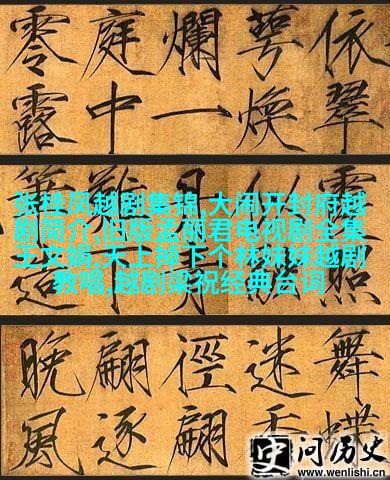 依翠
萼煥
爛一
庭中
零露
张桂凤越剧集锦,大闹开封府越
剧简介,旧版孟丽君电视剧全集
王文娟,天上掉下个林妹妹越剧
教唱,越剧梁祝经典台词
舞蝶
迷香
徑翩
翩逐
晚風
问历史
www.wenlishi.cn